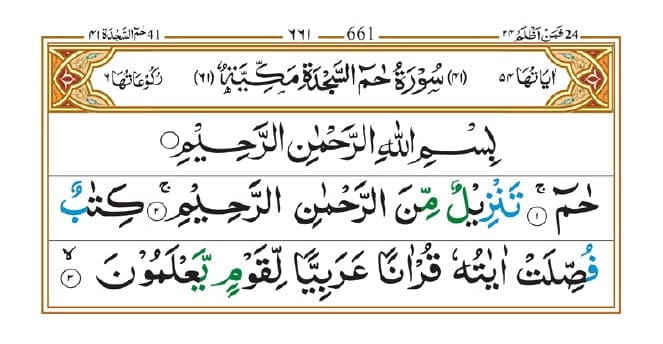 24 فَمَنْ اَظْلَمُ ۲۴ 661 ٦٦١ 41 حٰمٓ السَّجْدَة ۴۱
اٰیَاتُهَا ۵۴ (۴۱) سُوْرَةُ حٰمٓ السَّجْدَةِ مَكِّیَّةٌ (٦١) رُكُوْعَاتُهَا ٦
بِسْمِ اللّٰهِ الرَّحْمٰنِ الرَّحِیْمِ
حٰمٓ ۚ ۝۱ تَنْزِیْلٌ مِّنَ الرَّحْمٰنِ الرَّحِیْمِ ۚ ۝۲ كِتٰبٌ
فُصِّلَتْ اٰیٰتُهٗ قُرْاٰنًا عَرَبِیًّا لِّقَوْمٍ یَّعْلَمُوْنَ ۙ ۝۳